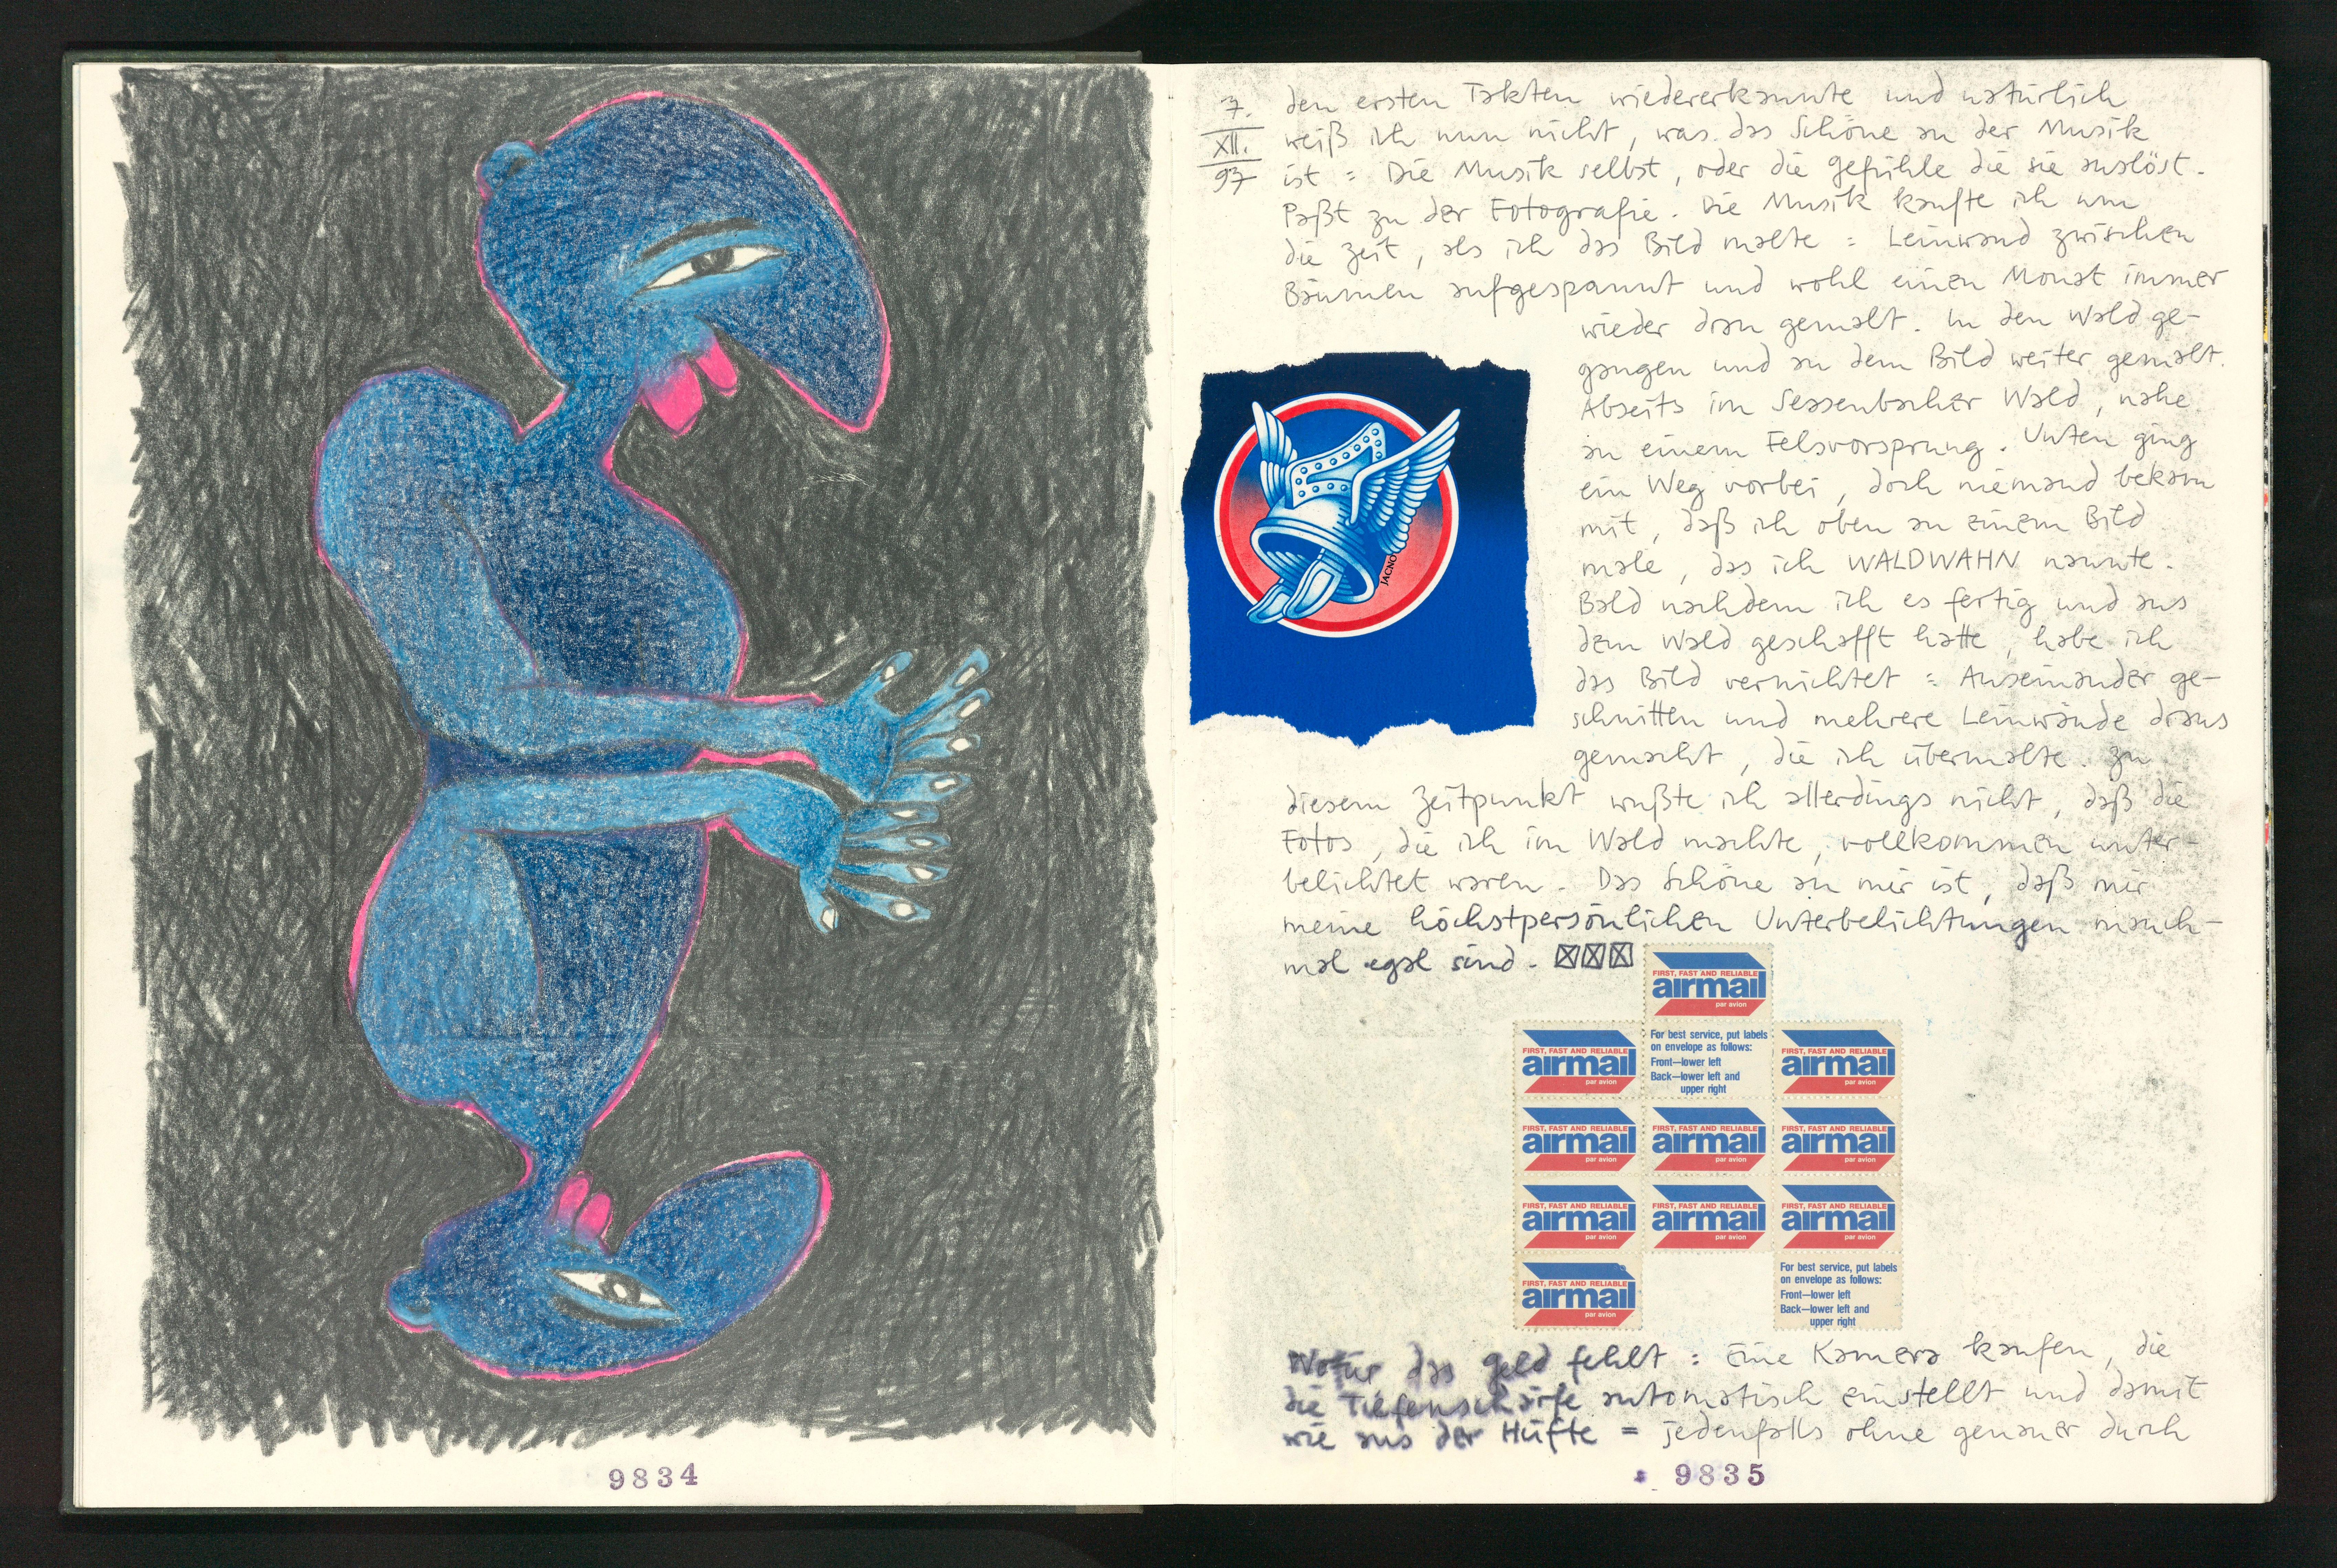 7.
XII.
97
den ersten Takten wiedererkannte und natürlich
weiß ich nun nicht, was das Schöne an der Musik
ist = Die Musik selbst, oder die Gefühle die sie auslöst.
Paßt zu der Fotografie. Die Musik kaufte ich um
die Zeit, als ich das Bild malte = Leinwand zwischen
Bäumen aufgespannt und wohl einen Monat immer
wieder dran gemalt. In den Wald ge-
gangen und an dem Bild weiter gemalt.
Abseits im Sessenbacher Wald, nahe
an einem Felsvorsprung. Unten ging
ein Weg vorbei, doch niemand bekam
mit, daß ich oben an einem Bild
male, das ich WALDWAHN nannte.
Bald nachdem ich es fertig und aus
dem Wald geschafft hatte, habe ich
das Bild vernichtet = Auseinander ge-
schnitten und mehrere Leinwände draus
gemacht, die ich übermalte. Zu
diesem Zeitpunkt wußte ich allerdings nicht, daß die
Fotos, die ich im Wald machte, vollkommen unter-
belichtet waren. Das Schöne an mir ist, daß mir
meine höchstpersönlichen Unterbelichtungen manch-
mal egal sind.
JACNO
FIRST, FAST AND RELIABLE
airmail
par avion
FIRST, FAST AND RELIABLE
airmail
par avion
For best service, put labels
on envelope as follows:
Front—lower left
Back—lower left and
upper right
FIRST, FAST AND RELIABLE
airmail
par avion
FIRST, FAST AND RELIABLE
airmail
par avion
FIRST, FAST AND RELIABLE
airmail
par avion
FIRST, FAST AND RELIABLE
airmail
par avion
FIRST, FAST AND RELIABLE
airmail
par avion
FIRST, FAST AND RELIABLE
airmail
par avion
FIRST, FAST AND RELIABLE
airmail
par avion
FIRST, FAST AND RELIABLE
airmail
par avion
For best service, put labels
on envelope as follows:
Front—lower left
Back—lower left and
upper right
Wofür das Geld fehlt = Eine Kamera kaufen, die
die Tiefenschärfe automatisch einstellt und damit
wie aus der Hüfte = jedenfalls ohne genauer durch
9834
9835